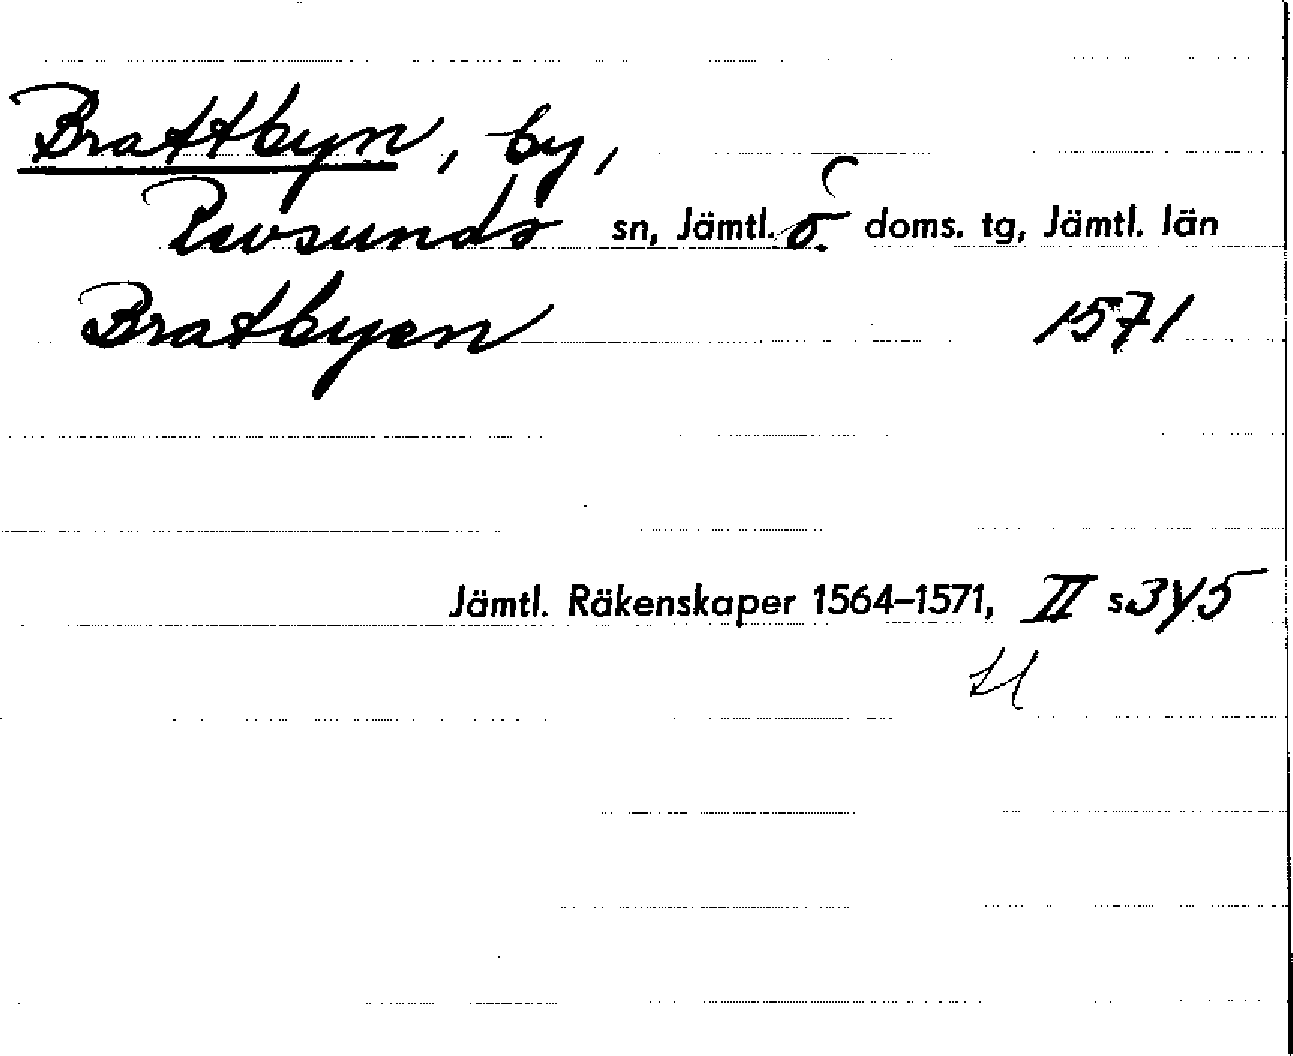 Brattbyn, by,
Revsunds sn, Jämtl. ö. doms. tg, Jämtl. län
Bratbyen 1571
Jämtl. Räkenskaper 1564–1571, II s. 345